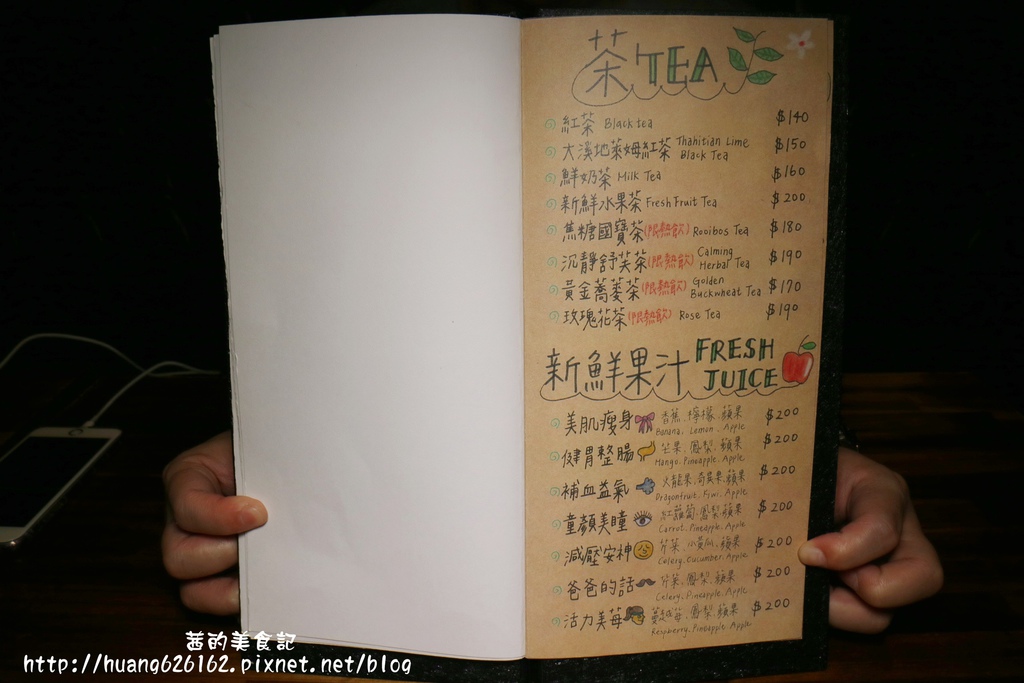 茶 TEA
紅茶 Black tea $140
大溪地萊姆紅茶 Thahitian Lime Black Tea $150
鮮奶茶 Milk Tea $160
新鮮水果茶 Fresh Fruit Tea $200
焦糖國寶茶(限熱飲) Rooibos Tea $180
沉靜舒芙茶(限熱飲) Calming Herbal Tea $190
黃金蕎麥茶(限熱飲) Golden Buckwheat Tea $170
玫瑰花茶(限熱飲) Rose Tea $190
新鮮果汁 FRESH JUICE
美肌瘦身 香蕉、檸檬、蘋果 $200
Banana, Lemon, Apple
健胃整腸 芒果、鳳梨、蘋果 $200
Mango, Pineapple, Apple
補血益氣 火龍果、奇異果、蘋果 $200
Dragonfruit, Kiwi, Apple
童顏美瞳 紅蘿蔔、鳳梨、蘋果 $200
Carrot, Pineapple, Apple
減壓安神 芹菜、小黃瓜、蘋果 $200
Celery, Cucumber, Apple
爸爸的話 芹菜、鳳梨、蘋果 $200
Celery, Pineapple, Apple
活力美莓 蔓越莓、鳳梨、蘋果 $200
Raspberry, Pineapple, Apple
茜的美食記
http://huang626162.pixnet.net/blog